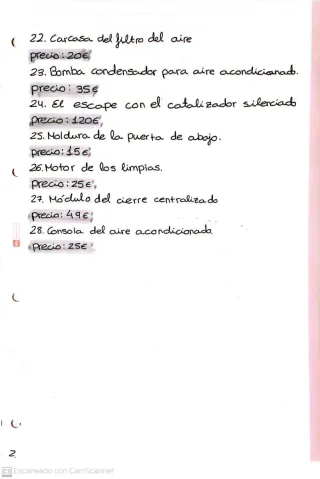 22. Carcasa del filtro del aire
precio: 20€
23. Bomba condensador para aire acondicionado.
precio: 35€
24. El escape con el catalizador silenciado
precio: 120€,
25. Moldura de la puerta de abajo.
precio: 15€,
26. Motor de los limpias.
Precio: 25€,
27. Módulo del cierre centralizado
Precio: 49€,
28. Consola del aire acondicionado.
Precio: 25€
2
CS Escaneado con CamScanner